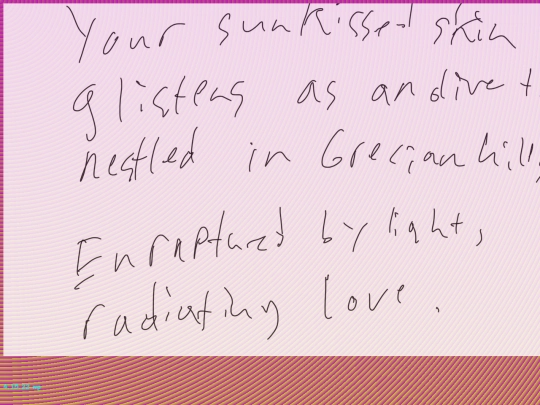 Your sunkissed skin
glistens as an olive t
nestled in Grecian hills
Enraptured by light,
radiating love.